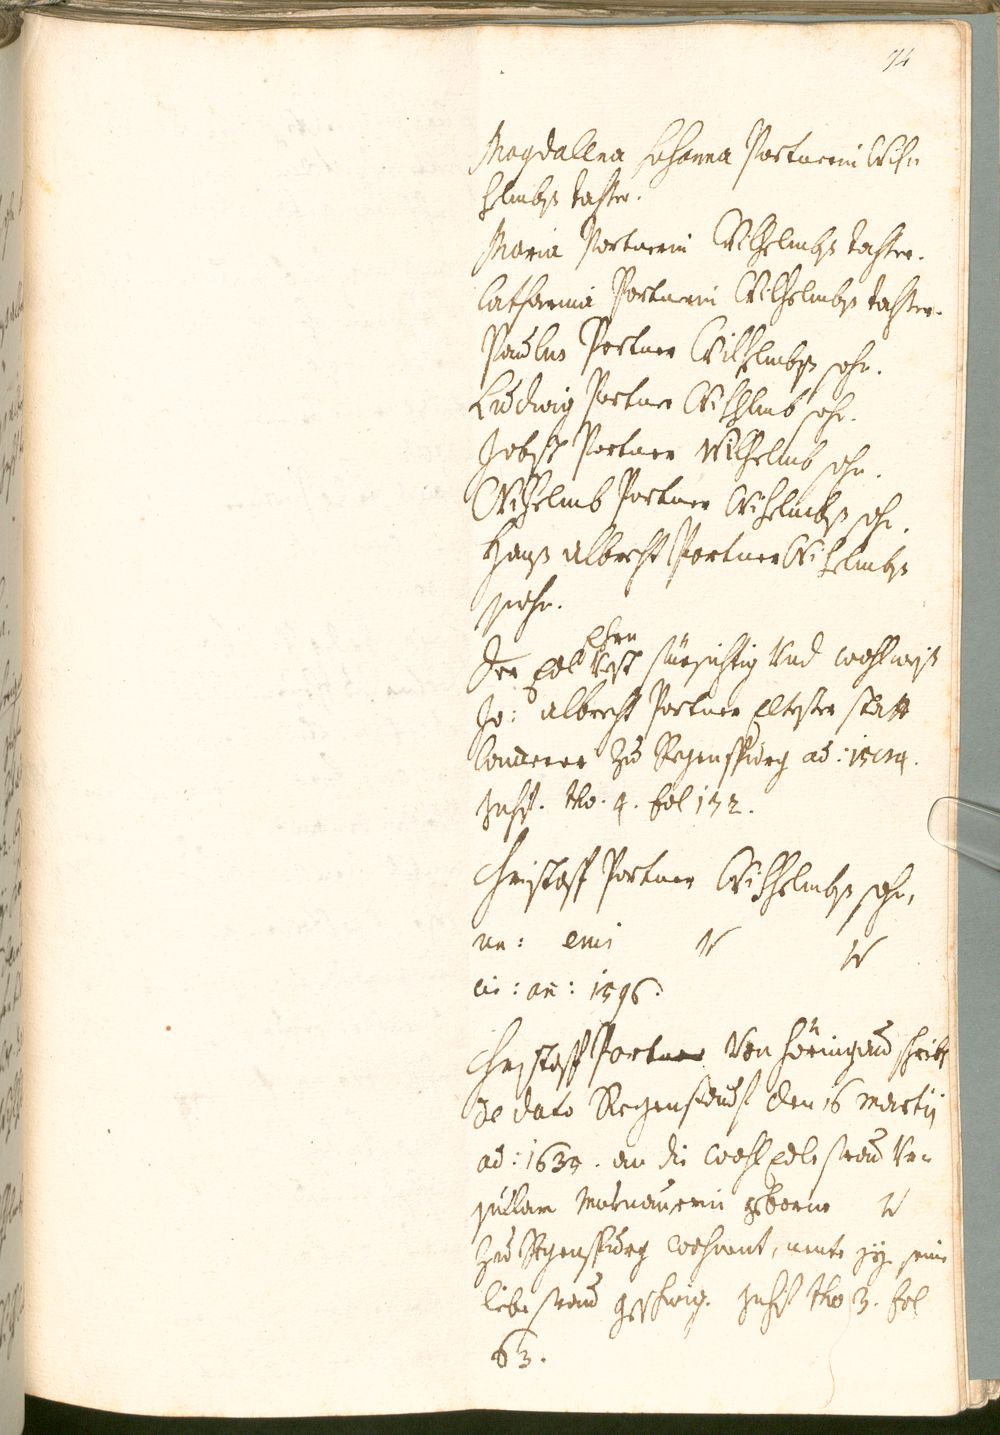 74
Magdallena Johanna Portnerin Wil=
helmbß dochter.
Maria Portnerin Wilhelmbß dochter.
Catharina Portnerin Wilhelmbß dochter.
Paulus Portner Wilhelmbß sohn.
Ludwig Portner Wilhelmb sohn.
Jobst Portner Wilhelmb sohn.
Wilhelmb Portner Wilhelmbß sohn.
Hanß Albrecht Portner Wilhelmbß
sohn.
Ehrn
Der Edl Vest fürsichtig Vnd wohlweiß
Jo: Albrecht Portner Eltester statt
Camerer zu Regenspurg ad:
tho. 4. fol 132.
Christoff Portner Wilhelmbß sohn,
an: 1596.
Christoff Portner Von Höringaus schribt
de dato den 16 Martij
ad: 163 . an die wohl Edle frau Vr=
geborne
zu Regenspurg wohnent, nente sye seine
liebe frau tho 3. fol
63.